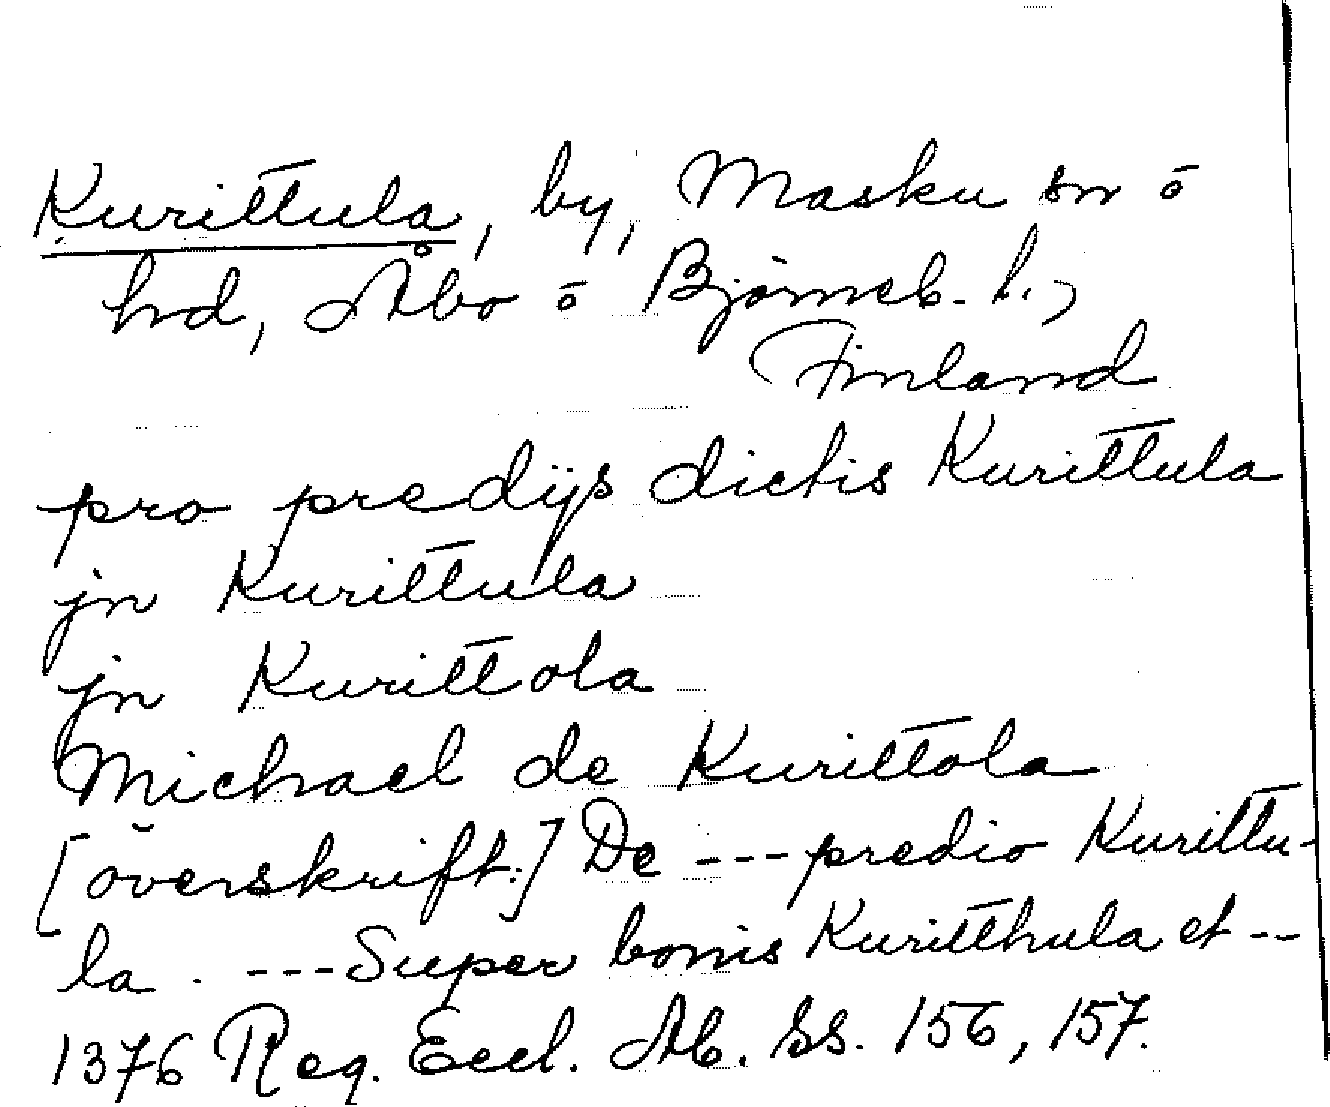 Kurittula, by, Masku sn o
hd, Åbo o Björneb. l.,
Finland
pro predijs dictis Kurittula
jn Kurittula
jn Kurittola
Michael de Kurittola
[överskrift:] De --- predio Kurittu-
la. --- Super bonis Kuritthula et --
1376 Reg. Eccl. Ab. ss. 156, 157.